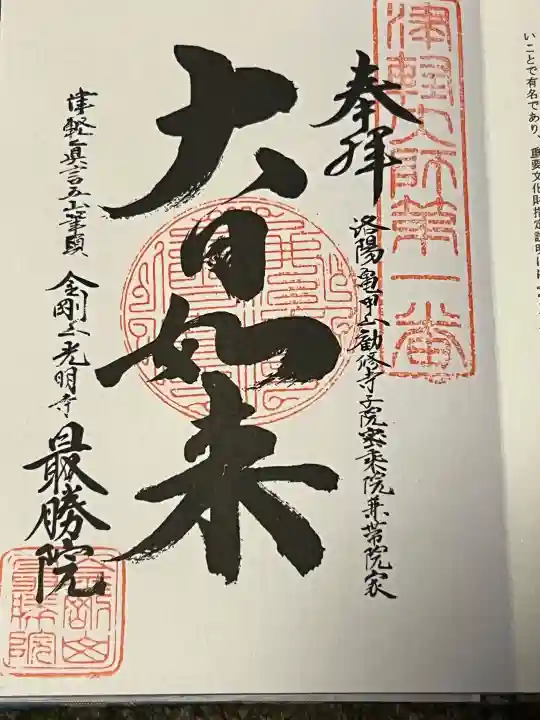 いことで有名であり、重要文化財指定説明には
津軽大師第一番
奉拝
洛陽亀甲山勧修寺子院密乗院兼帯院家
大日如来
津軽真言五山筆頭 金剛山光明寺 最勝院
金剛山
最勝院